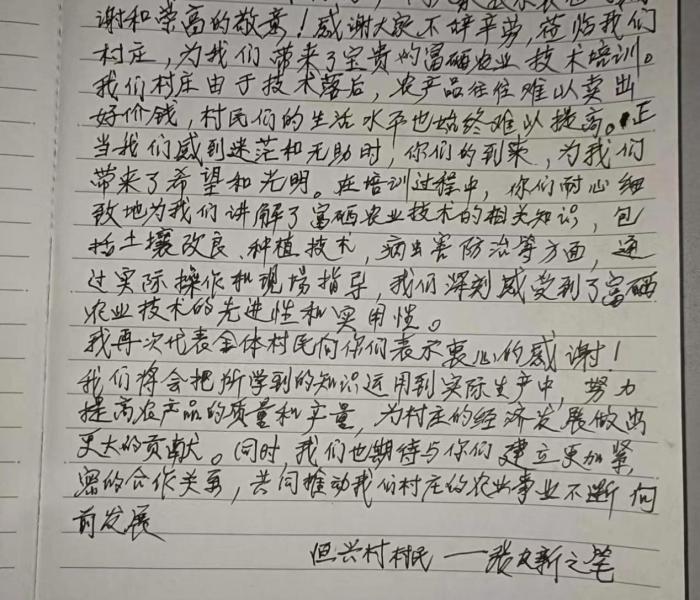 谢和崇高的敬意！感谢大家不辞辛劳，莅临我们
村庄，为我们带来了宝贵的富硒农业技术培训。
我们村庄由于技术落后，农产品往往难以卖出
好价钱，村民们的生活水平也始终难以提高。正
当我们感到迷茫和无助时，你们的到来，为我们
带来了希望和光明。在培训过程中，你们耐心细
致地为我们讲解了富硒农业技术的相关知识，包
括土壤改良、种植技术，病虫害防治等方面，通
过实际操作和现场指导，我们深刻感受到了富硒
农业技术的先进性和实用性。
我再次代表全体村民向你们表示衷心的感谢！
我们将会把所学到的知识运用到实际生产中，努力
提高农产品的质量和产量，为村庄的经济发展做出
更大的贡献。同时，我们也期待与你们建立更加紧
密的合作关系，共同推动我们村庄的农业事业不断向
前发展
恒兴村村民——张文新之笔